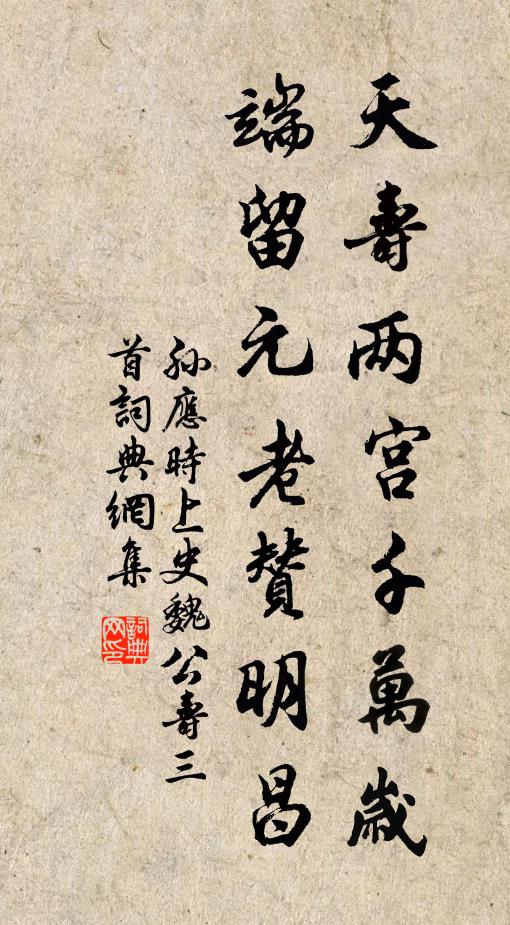 天壽两宫千萬歲
端留元老賛明昌
孫應時上史魏公壽三
首詞典網集
詞典
网印